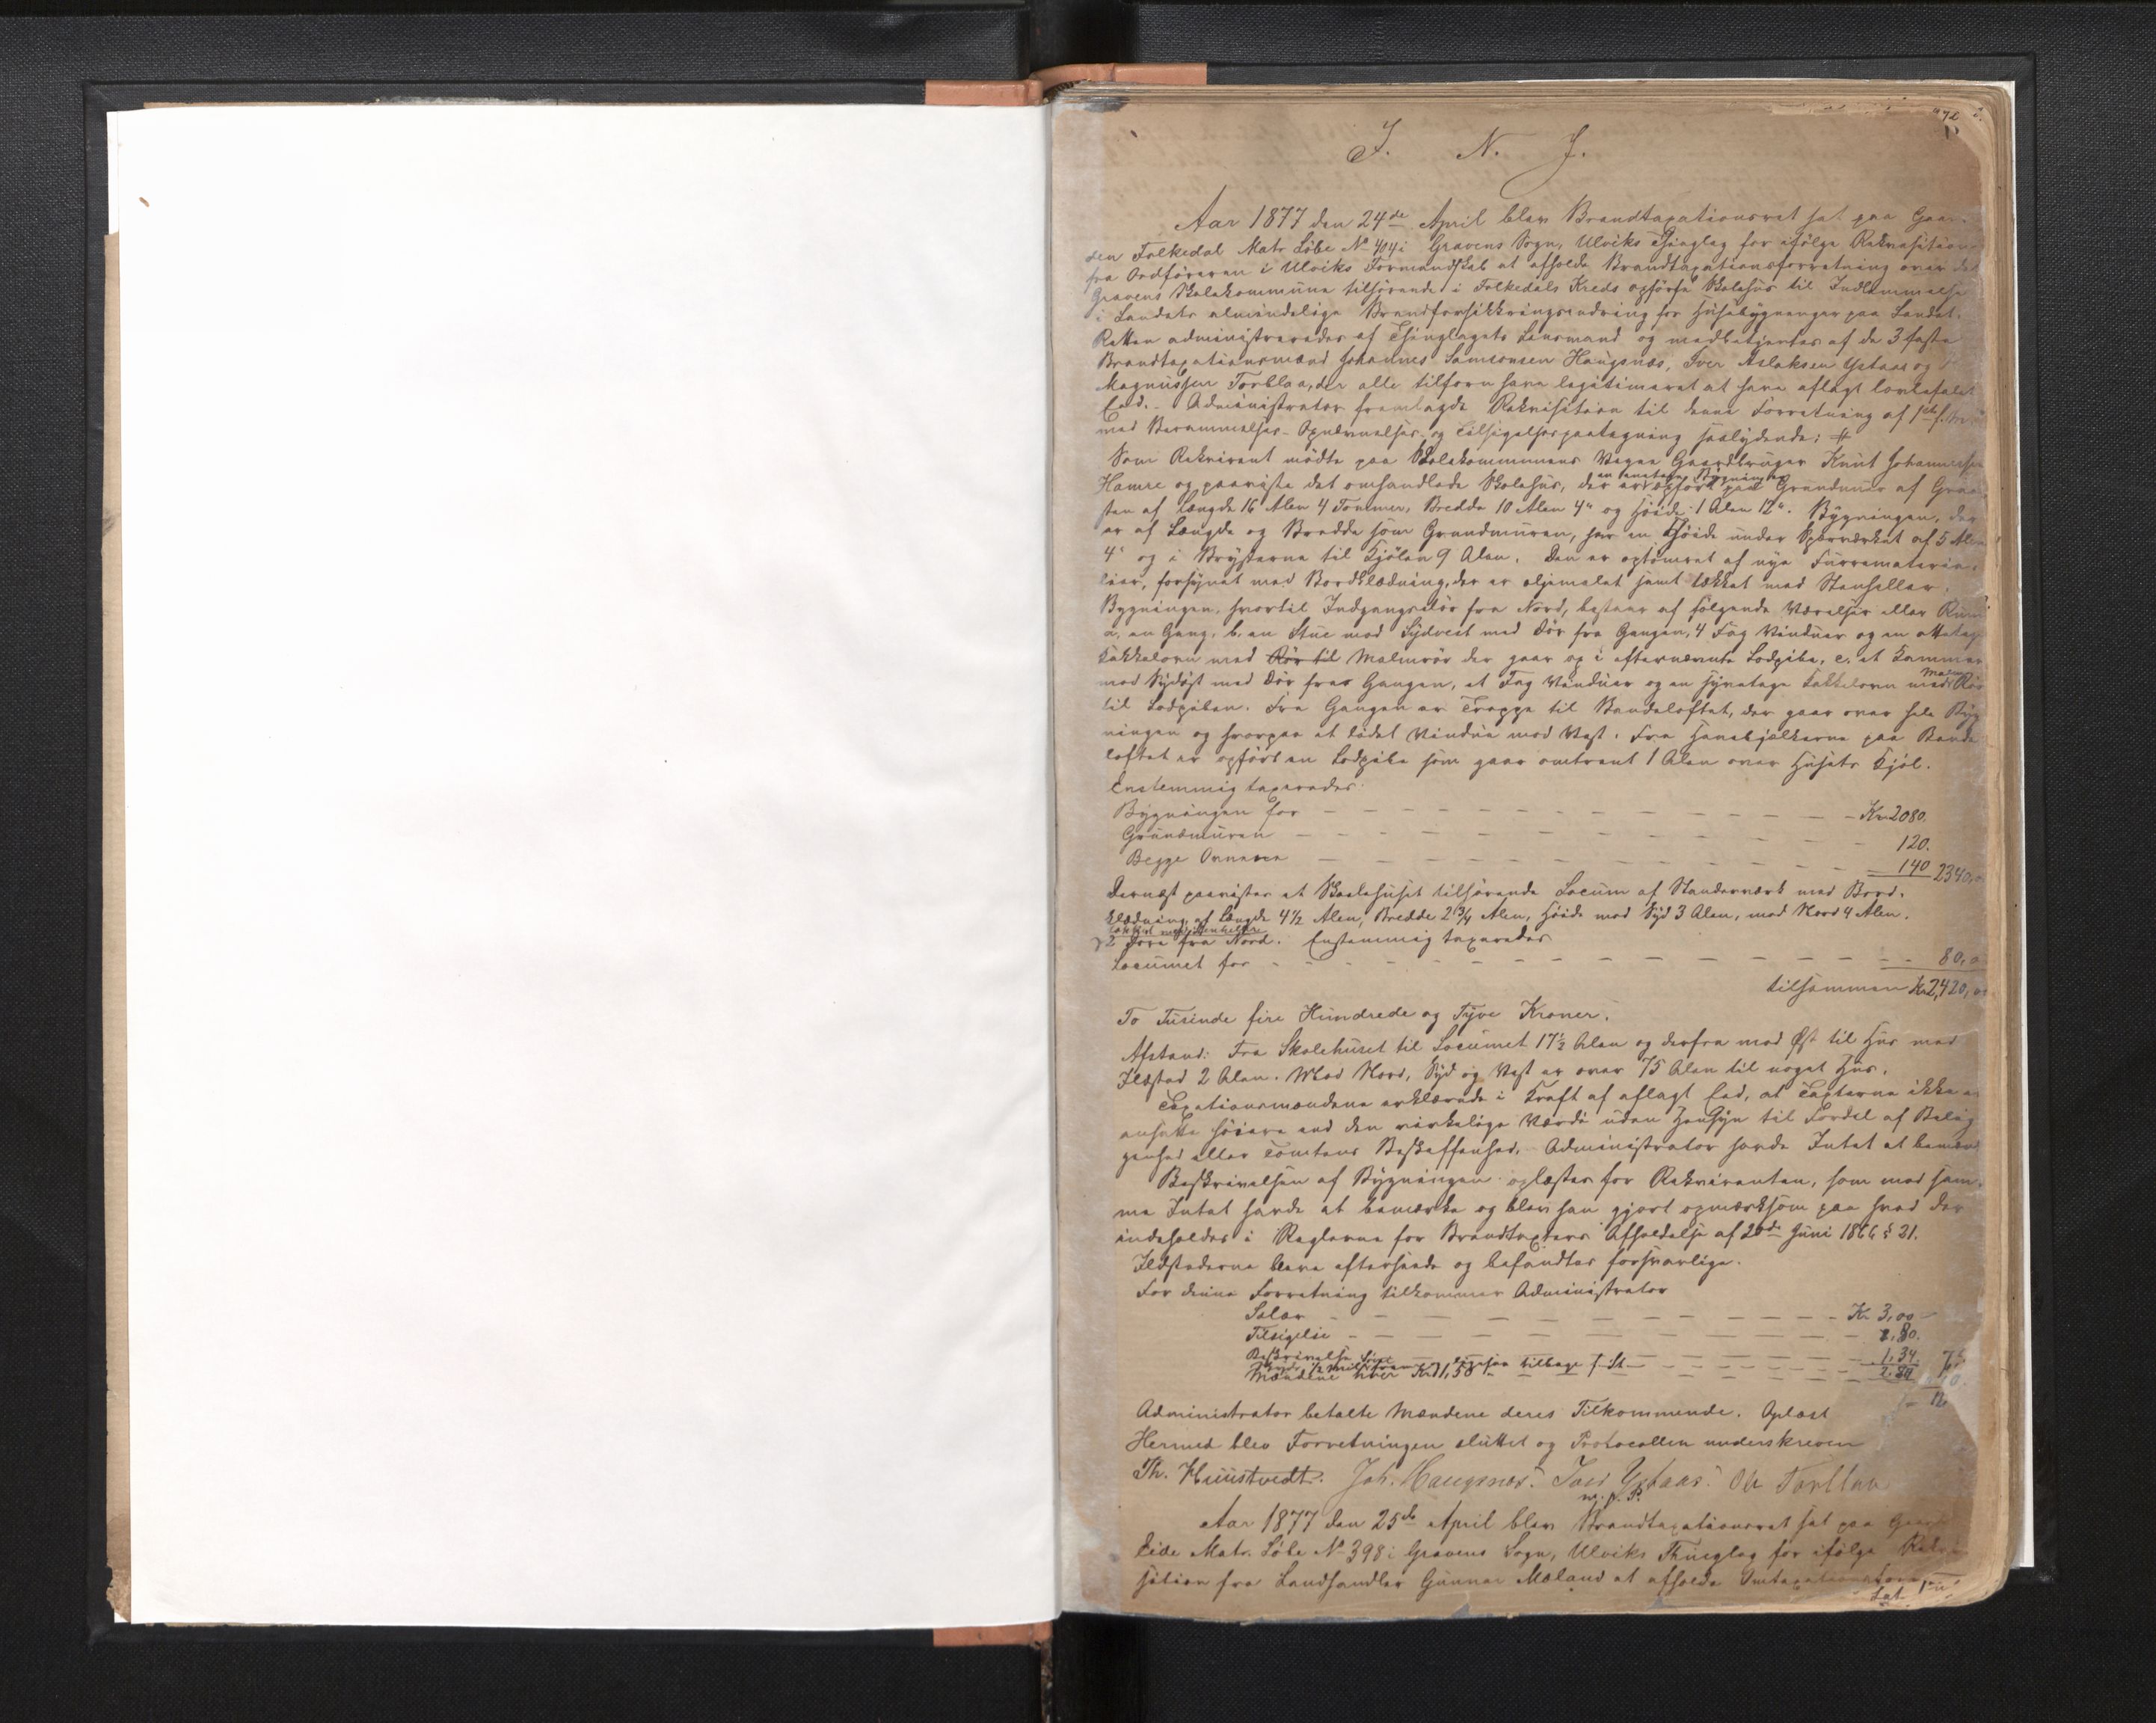 I. N. J.
Aar 1877 den 24de April blev Brandtaxationsret sat paa Gaar-
den Folkedal Matr Løbe No 404 i Gravens Sogn, Ulviks Thinglag for ifølge Rekvisition
fra Ordføreren i Ulviks Formandskab at afholde Brandtaxationsforretning over det
Gravens Skolekommune tilhørende i Folkedals Kreds opførte Skolehus til Indlemmelse
i Landets almindelige Brandforsikkringsindretning for Husebygninger paa Landet.
Retten administreredes af Thinglagets Lensmand og medbetjentes af de 3 faste
Brandtaxationsmænd Johannes Samsonsen Haugsnæs, Iver Aslaksen Ystaas og
Magnussen Torblaa, der alle tilforn have legitimeret at have aflagt lovbefalet
Eed. Administrator fremlagde Rekvisition til denne Forretning af 1ste
med Berammelses- Opnævnelses- og Tilsigelsespaategning saalydende: #
Som Rekvirent mødte paa Skolekommunens Vegne Gaardbruger Knut Johannessen
Hamre og paaviste det omhandlede Skolehus, der er en enetages Bygning opført paa Grundmur af Graa-
sten af Længde 16 Alen 4 Tommer, Bredde 10 Alen 4" og Høide 1 Alen 12". Bygningen, der
er af Længde og Bredde som Grundmuren, har en Høide under Sperreværket af 5 Alen
4" og i Brysterne til Kjølen 9 Alen. Den er optømret af nye Furremateria-
lier, forsynet med Bordklædning, der er oljemalet samt tækket med Stenheller.
Bygningen, hvortil Indgangsdør fra Nord, bestaar af følgende Værelser eller Rum
a, en Gang, b. en Stue mod Sydvest med Dør fra Gangen, 4 Fag Vinduer og en ottetages
Kakkelovn med Rør til Malmrør der gaar op i efternævnte Lodpibe, c. et Kammer
mod Sydøst med Dør fra Gangen, et Fag Vinduer og en tyvetage Kakkelovn med Malm Rør
til Lodpiben. Fra Gangen er Trappe til Bandeloftet, der gaar over hele Byg
ningen og hvorpaa et lidet Vindue mod Vest. Fra Hanebjelkerne paa Bande
loftet er opført en Lodpibe som gaar omtrent 1 Alen over Husets Kjøl.
Enstemmig taxeredes:
Bygningen for Kr 2080.
Grundmuren 120.
Begge Ovnene 140 2340,
Dernæst paavistes et Skolehuset tilhørende Locum af Stenderværk med Bord-
klædning, af Længde 4 1/2 Alen, Bredde 2 3/4 Alen, Høide mod Syd 3 Alen, mod Nord 4 Alen.
tækket med Stenhellere
2 Døre fra Nord. Enstemmig taxeredes
Locumet for 80,
tilsammen Kr 2,420,
To Tusinde fire Hundrede og Tyve Kroner.
Afstand: Fra Skolehuset til Locumet 17 1/2 Alen og derfra mod Øst til Hus med
Ildsted 2 Alen. Mod Nord, Syd og Vest er over 75 Alen til noget Hus.
Taxationsmændene erklærede i Kraft af aflagt Eed, at Taxterne ikke er
ansatte høiere end den virkelige Værdi uden Hensyn til Fordel af Belig
genhed eller Tomtens Beskaffenhed. Administrator havde Intet at bemærke
Beskrivelsen af Bygningen oplæstes for Rekvirenten, som mod sam-
me Intet havde at bemærke og blev han gjort opmærksom paa hvad der
indeholdes i Reglerne for Brandtaxters Afholdelse af 20de Juni 1866 § 21.
Ildstederne bleve efterseede og befandtes forsvarlige.
For denne Forretning tilkommer Administrator
Salær Kr 3,00
Tilsigelse ,80.
Beskrivelse 1,34
Skyds 1/2 Mil frem og ligesaa tilbage
Mændene hver Kr 1,58
Administrator betalte Mændene deres Tilkommende. Oplæst
Hermed blev Forretningen sluttet og Protocollen underskreven
Th. Huustvedt. Joh. Haugsnæs. Iver Ystaas. Torblaa
m. p. P.
Aar 1877 den 25de April blev Brandtaxationsret sat paa Gaard
Eide Matr. Løbe No 398 i Gravens Sogn, Ulviks Thinglag for ifølge Rekvi
sition fra Landhandler Gunnar Mæland at afholde Omtaxations
Lat.